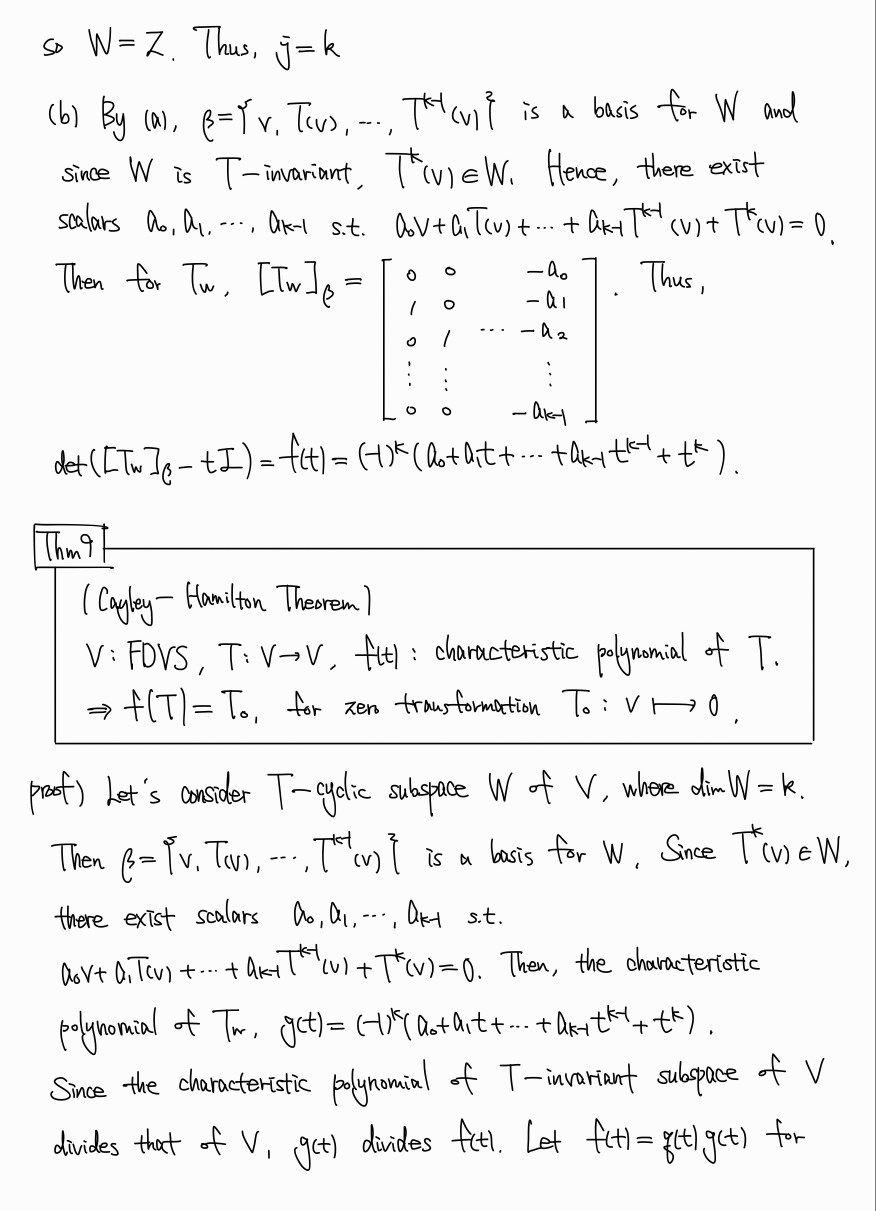 so W=Z. Thus, j=k
(b) By (a), β={v, T(v), ⋯, T^{k-1}(v)} is a basis for W and
since W is T-invariant, T^k(v)∈W. Hence, there exist
scalars a₀, a₁, ⋯, a_{k-1} s.t. a₀v+a₁T(v)+⋯+a_{k-1}T^{k-1}(v)+T^k(v)=0.
Then for T_W, [T_W]_β = [ 0 0 -a₀ . Thus,
1 0 -a₁
0 1 ⋯ -a₂
⋮ ⋮ ⋮
0 0 -a_{k-1} ]
det([T_W]_β - tI) = f(t) = (-1)^k(a₀+a₁t+⋯+a_{k-1}t^{k-1}+t^k).
Thm9
(Cayley-Hamilton Theorem)
V: FDVS, T: V→V, f(t): characteristic polynomial of T.
⇒ f(T)=T₀, for zero transformation T₀: v ↦ 0.
proof) Let's consider T-cyclic subspace W of V, where dim W = k.
Then β={v, T(v), ⋯, T^{k-1}(v)} is a basis for W. Since T^k(v)∈W,
there exist scalars a₀, a₁, ⋯, a_{k-1} s.t.
a₀v+a₁T(v)+⋯+a_{k-1}T^{k-1}(v)+T^k(v)=0. Then, the characteristic
polynomial of T_W, g(t)=(-1)^k(a₀+a₁t+⋯+a_{k-1}t^{k-1}+t^k).
Since the characteristic polynomial of T-invariant subspace of V
divides that of V, g(t) divides f(t). Let f(t)=q(t)g(t) for